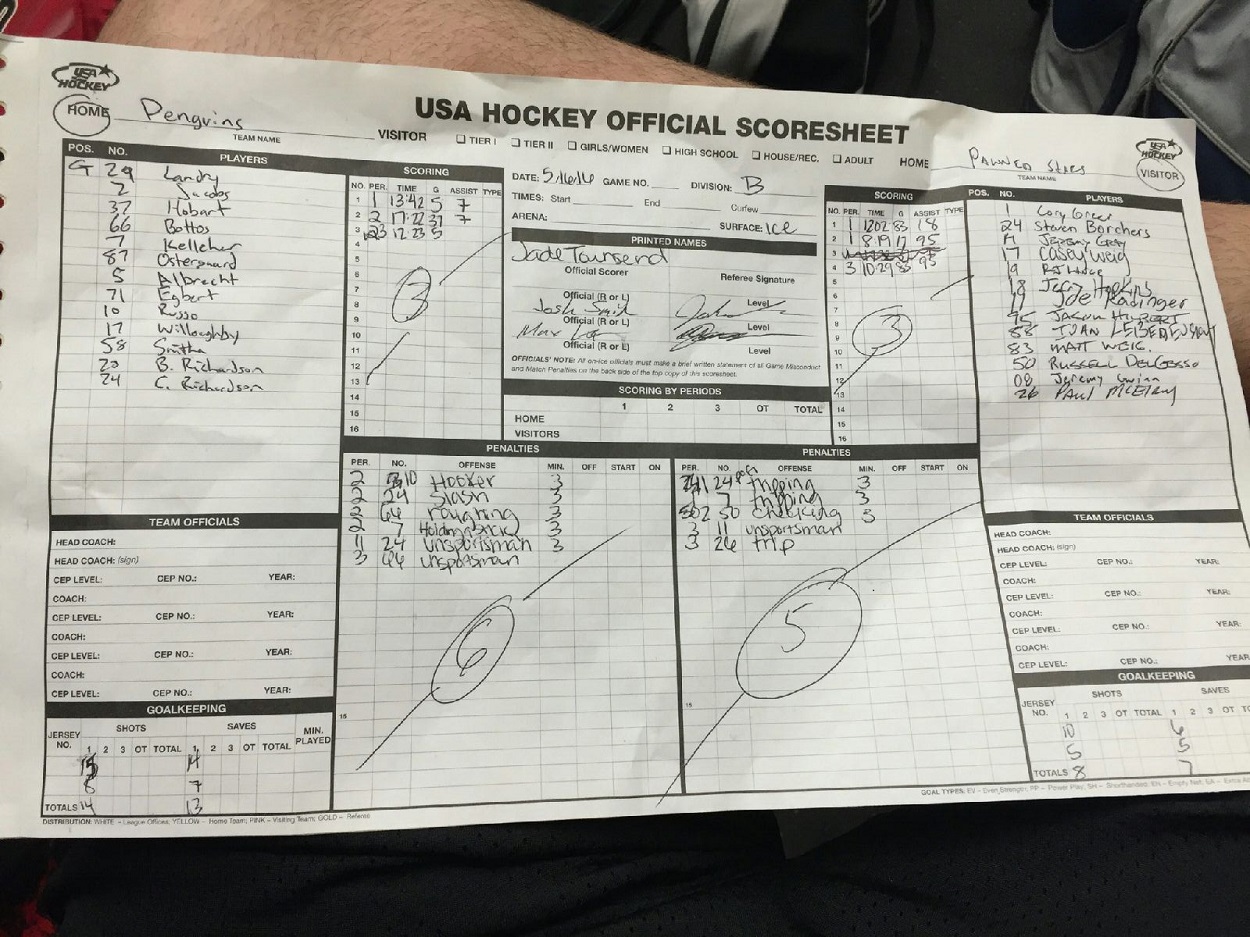 USA HOCKEY
HOME Penguins
TEAM NAME
VISITOR
USA HOCKEY OFFICIAL SCORESHEET
☐ TIER I ☐ TIER II ☐ GIRLS/WOMEN ☐ HIGH SCHOOL ☐ HOUSE/REC. ☐ ADULT
HOME PAWNED STARS
TEAM NAME
USA HOCKEY
VISITOR
POS. NO. PLAYERS
G 29 Landry
2 Jacobs
37 Hobart
66 Bottos
7 Kelleher
87 Ostergaard
5 Albrecht
71 Egbert
10 Russo
17 Willoughby
58 Smith
20 B. Richardson
24 C. Richardson
SCORING
NO. PER. TIME G ASSIST TYPE
1 1 13:42 5 7
2 2 17:22 37 7
3 3 12:23 5
4
5
6
7
8
9
10
11
12
13
14
15
16
3
DATE: 5.16.16 GAME NO. DIVISION: B
TIMES: Start End Curfew
ARENA: SURFACE: ICE
PRINTED NAMES
Jade Townsend
Official Scorer Referee Signature
Official (R or L) Level
Josh Smith
Official (R or L) Level
Max
Official (R or L) Level
OFFICIALS' NOTE: All on-ice officials must make a brief written statement of all Game Misconduct
and Match Penalties on the back side of the top copy of this scoresheet.
SCORING BY PERIODS
1 2 3 OT TOTAL
HOME
VISITORS
SCORING
NO. PER. TIME G ASSIST TYPE
1 1 1202 83 18
2 1 8:19 17 95
3
4 3 10:29 83 95
5
6
7
8
9
10
11
12
13
14
15
16
3
POS. NO. PLAYERS
1 Cory Greer
24 Steven Borchers
Jeremy Grey
17 Casey Weig
9
18 Jerry Hopkins
11 Joe Radinger
95 JASON
88 IVAN
83 MATT WEIG
50 RUSSELL DELGESSO
08 Jeremy Gwinn
26 PAUL MCELROY
PENALTIES
PER. NO. OFFENSE MIN. OFF START ON
2 10 Hooker 3
2 24 Slash 3
2 66 roughing 3
2 7 Holding Stick 3
11 24 unsportsman 3
3 66 unsportsman
6
15
PENALTIES
PER. NO. OFFENSE MIN. OFF START ON
1 24 tripping 3
1 7 tripping 3
2 50 checking 3
3 11 unsportsman
3 26 trip
5
15
TEAM OFFICIALS
HEAD COACH:
HEAD COACH: (sign)
CEP LEVEL: CEP NO.: YEAR:
COACH:
CEP LEVEL: CEP NO.: YEAR:
COACH:
CEP LEVEL: CEP NO.: YEAR:
COACH:
CEP LEVEL: CEP NO.: YEAR:
GOALKEEPING
JERSEY NO. SHOTS SAVES MIN. PLAYED
1 2 3 OT TOTAL 1 2 3 OT TOTAL
15 14
8 7
TOTALS 14 13
TEAM OFFICIALS
HEAD COACH:
HEAD COACH: (sign)
CEP LEVEL: CEP NO.: YEAR:
COACH:
CEP LEVEL: CEP NO.: YEAR:
COACH:
CEP LEVEL: CEP NO.: YEAR:
COACH:
CEP LEVEL: CEP NO.: YEAR
GOALKEEPING
JERSEY NO. SHOTS SAVES
1 2 3 OT TOTAL 1 2 3 OT
10 6
5 5
TOTALS 8 7
DISTRIBUTION: WHITE – League Offices; YELLOW – Home Team; PINK – Visiting Team; GOLD – Referee
GOAL TYPES: EV – Even Strength, PP – Power Play, SH – Shorthanded, EN – Empty Net, EA – Extra